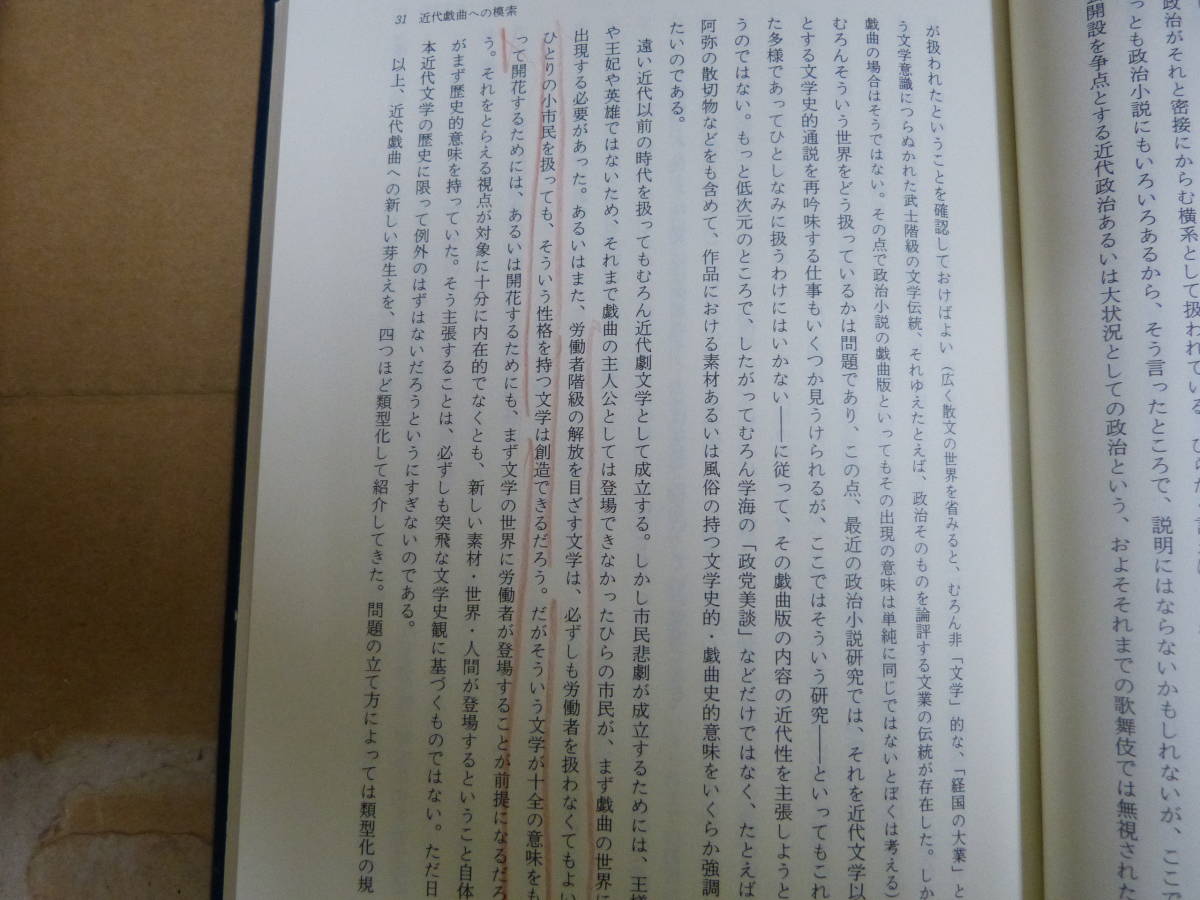 政治がそれと密接にからむ横系として扱われている。
っとも政治小説にもいろいろあるから、そう言ったところで、説明にはならないかもしれないが、ここで
開設を争点とする近代政治あるいは大状況としての政治という、およそそれまでの歌舞伎では無視された
が扱われたということを確認しておけばよい（広く散文の世界を省みると、むろん非「文学」的な、「経国の大業」と
う文学意識につらぬかれた武士階級の文学伝統、それゆえたとえば、政治そのものを論評する文業の伝統が存在した。しか
戯曲の場合はそうではない。その点で政治小説の戯曲版といってもその出現の意味は単純に同じではないとぼくは考える）
むろんそういう世界をどう扱っているかは問題であり、この点、最近の政治小説研究では、それを近代文学以
とする文学史的通説を再吟味する仕事もいくつか見うけられるが、ここではそういう研究――といってもこれ
た多様であってひとしなみに扱うわけにはいかない――に従って、その戯曲版の内容の近代性を主張しようと
うのではない。もっと低次元のところで、したがってむろん学海の「政党美談」などだけではなく、たとえば
阿弥の散切物などをも含めて、作品における素材あるいは風俗の持つ文学史的・戯曲史的意味をいくらか強調
たいのである。
遠い近代以前の時代を扱ってもむろん近代劇文学として成立する。しかし市民悲劇が成立するためには、王様
や王妃や英雄ではないため、それまで戯曲の主人公としては登場できなかったひらの市民が、まず戯曲の世界に
出現する必要があった。あるいはまた、労働者階級の解放を目ざす文学は、必ずしも労働者を扱わなくてもよい
ひとりの小市民を扱っても、そういう性格を持つ文学は創造できるだろう。だがそういう文学が十全の意味をも
って開花するためには、あるいは開花するためにも、まず文学の世界に労働者が登場することが前提になるだろ
う。それをとらえる視点が対象に十分に内在的でなくとも、新しい素材・世界・人間が登場するということ自体
がまず歴史的意味を持っていた。そう主張することは、必ずしも突飛な文学史観に基づくものではない。ただ日
本近代文学の歴史に限って例外のはずはないだろうというにすぎないのである。
以上、近代戯曲への新しい芽生えを、四つほど類型化して紹介してきた。問題の立て方によっては類型化の規
31 近代戯曲への模索